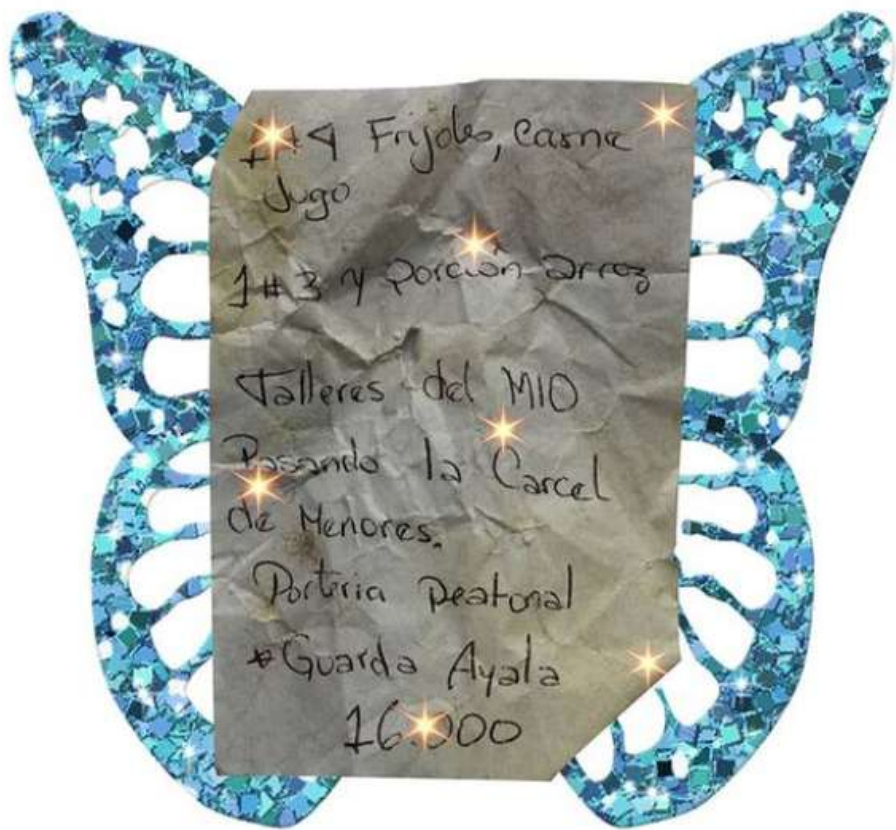 1#4 Frijoles, carne
Jugo
1#3 y porción arroz
Talleres del MIO
Pasando la Carcel
de Menores.
Porteria peatonal
*Guarda Ayala
16.000